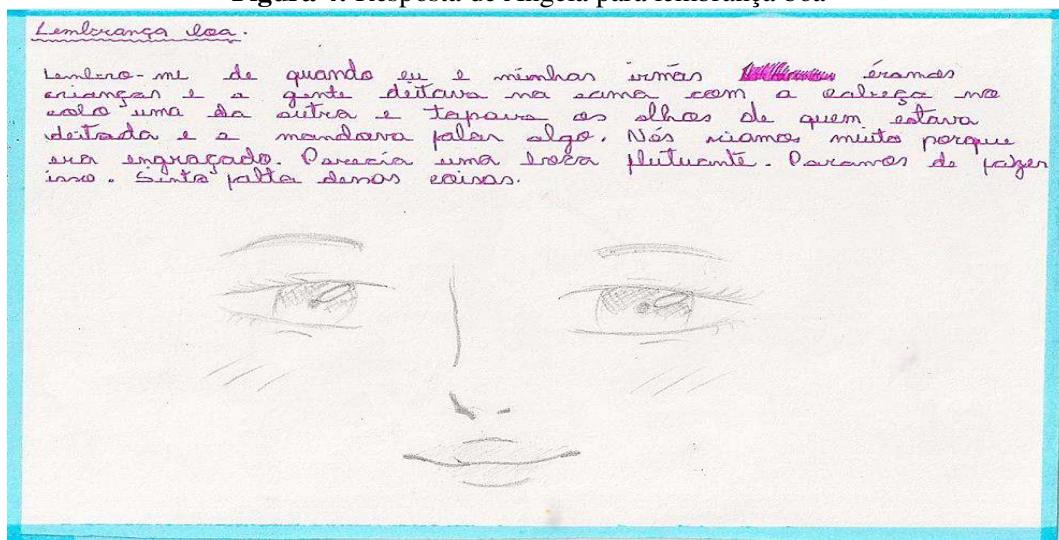 Figura 4. Resposta de Ângela para lembrança boa
Lembrança boa.
Lembro-me de quando eu e minhas irmãs éramos
crianças e a gente deitava na cama com a cabeça no
colo uma da outra e tapava os olhos de quem estava
deitada e a mandava falar algo. Nós riamos muito porque
era engraçado. Parecia uma boca flutuante. Paramos de fazer
isso. Sinto falta dessas coisas.